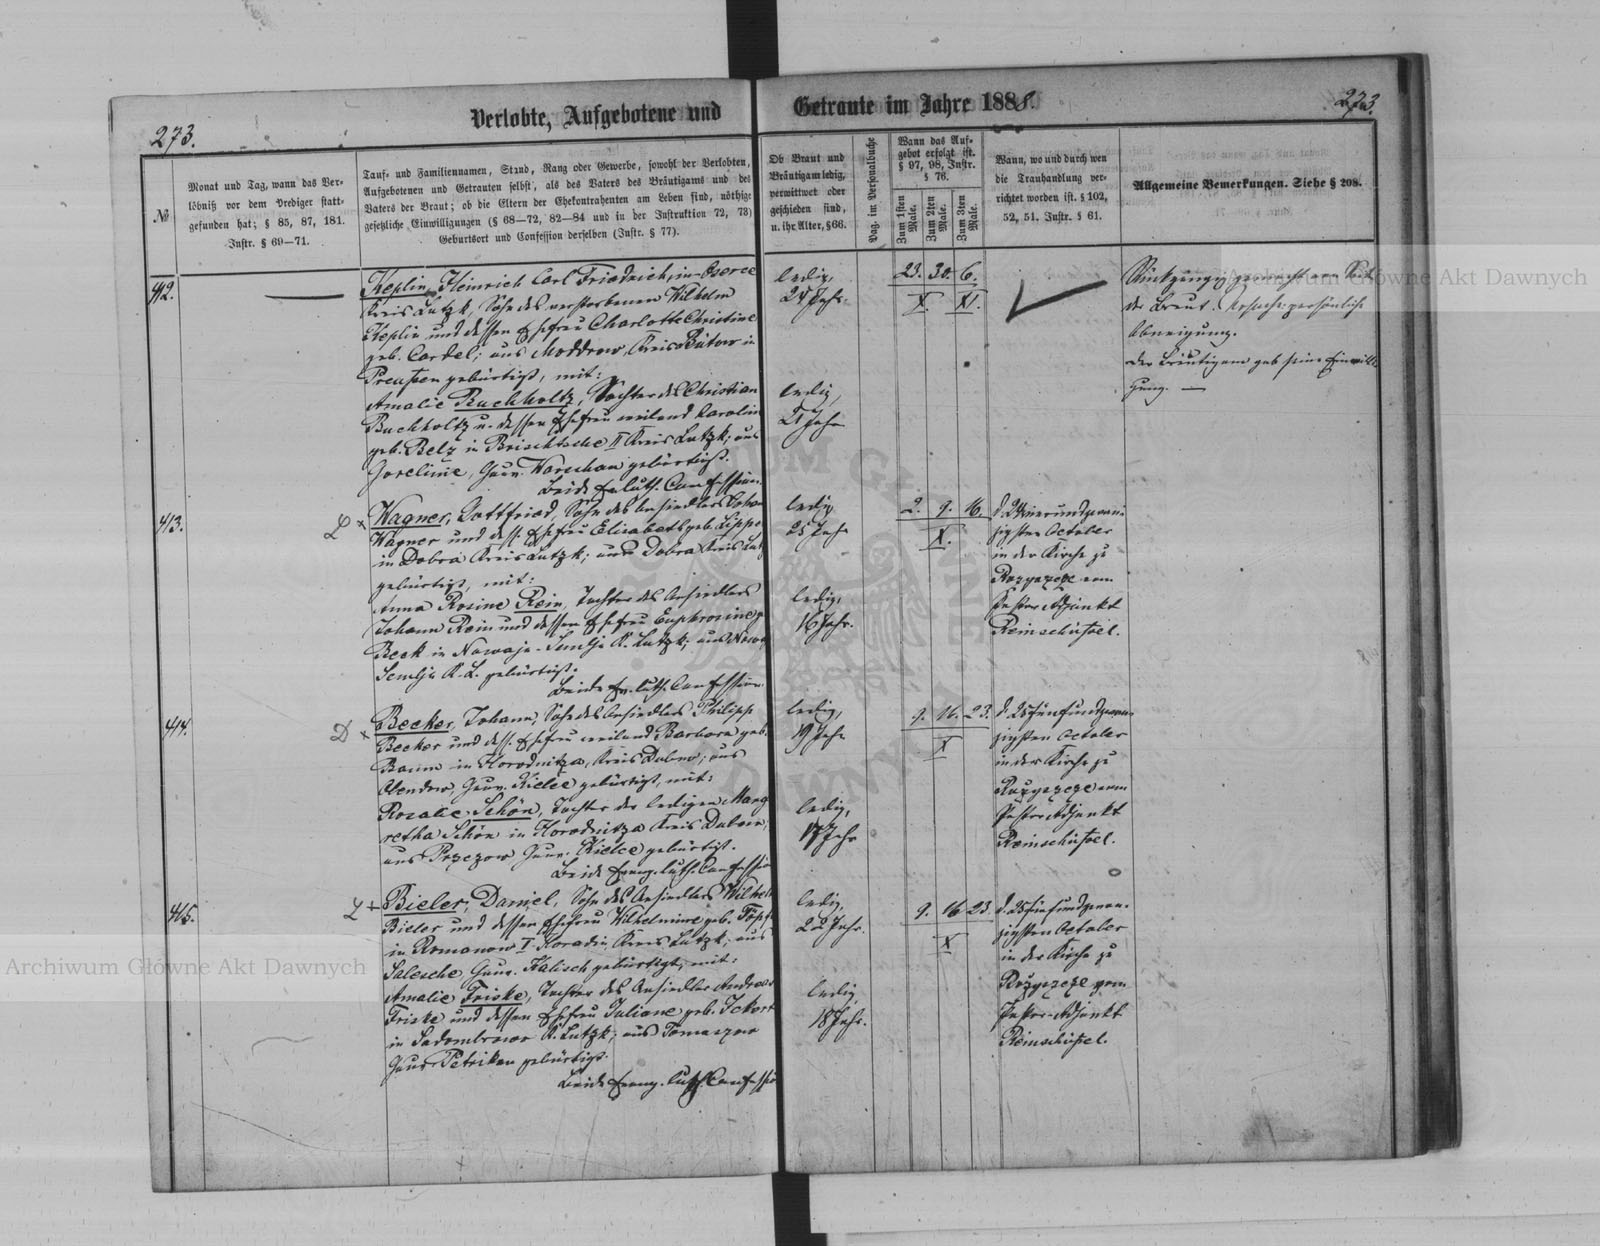 273.
Verlobte, Aufgebotene und
Getraute im Jahre 1888.
273.
№
Monat und Tag, wann das Ver-
löbniß vor dem Prediger statt-
gefunden hat; § 85, 87, 181.
Instr. § 69—71.
Tauf- und Familiennamen, Stand, Rang oder Gewerbe, sowohl der Verlobten,
Aufgebotenen und Getrauten selbst, als des Vaters des Bräutigams und des
Vaters der Braut; ob die Eltern der Ehekontrahenten am Leben sind, nöthige
gesetzliche Einwilligungen (§ 68—72, 82—84 und in der Instruktion 72, 73)
Geburtsort und Confession derselben (Instr. § 77).
Ob Braut und
Bräutigam ledig,
verwittwet oder
geschieden sind,
u. ihr Alter, § 66.
Pag. im Personalbuche
Wann das Auf-
gebot erfolgt ist.
§ 97, 98, Instr.
§ 76.
Zum 1sten Male.
Zum 2ten Male.
Zum 3ten Male.
Wann, wo und durch wen
die Trauhandlung ver-
richtet worden ist. § 102,
52, 51. Instr. § 61.
Allgemeine Bemerkungen. Siehe § 208.
412.
Keplin, Heinrich Carl Friedrich, in
Kreis Lutzk, Sohn des verstorbenen Wilhelm
Keplin und dessen Ehefrau Charlotte Christine
geb. Cardel; aus Moddrow, Kreis Bütow in
Preußen gebürtigt, mit:
Amalie Buchholtz, Tochter des Christian
Buchholtz u. dessen Ehefrau weiland Karoline
geb. Belz in Brischtsche II Kreis Lutzk; aus
Gouv. Warschau gebürtigt.
Beide Ev. luth. Confession.
ledig,
24 Jahr.
ledig,
21 Jahr
23. 30. 6.
X. XI.
gemacht von Seit
der Braut. Ursache: persönliche
Abneigung.
Der Bräutigam gab seine Einwilli-
gung. —
413.
L +
Wagner, Gottfried, Sohn des Ansiedlers Johan
Wagner und dess. Ehefrau Elisabeth geb. Lippe
in Dobra Kreis Lutzk; aus Dobra Kreis Lutz
gebürtigt, mit:
Anna Rosine Rein, Tochter des Ansiedlers
Johann Rein und dessen Ehefrau Euphrosine g
Beck in Nowaja-Semlja K. Lutzk; aus Nowa
Semlja K. L. gebürtigt.
Beide Ev. luth. Confession.
ledig,
25 Jahr
ledig,
16 Jahr.
2. 9. 16.
X.
d. 24 vierundzwan-
zigsten October
in der Kirche zu
Rozyszcze vom
Pastor-Adjunkt
Reinschüssel.
414.
D +
Becker, Johann, Sohn des Ansiedlers Philipp
Becker und dess. Ehefrau weiland Barbara geb.
Baum in Horodnitza, Kreis Dubno; aus
Gouv. Kielce gebürtigt, mit:
Rosalie Schön, Tochter der ledigen Marga
retha Schön in Horodnitza Kreis Dubno,
aus Gouv. Kielce gebürtigt.
Beide Evang. luth. Confession
ledig,
19 Jahr
ledig,
17 Jahr
9. 16. 23.
X
d. 25 fünfundzwan-
zigsten October
in der Kirche zu
Rozyszcze vom
Pastor-Adjunkt
Reinschüssel.
415.
L +
Bieler, Daniel, Sohn des Ansiedlers Wilhelm
Bieler und dessen Ehefrau Wilhelmine geb. Töpf
in Romanow I Kreis Lutzk; aus
Gouv. Kalisch gebürtigt, mit:
Amalie Friske, Tochter des Ansiedler Andreas
Friske und dessen Ehefrau Juliane geb. Ickert
in K. Lutzk; aus Tomaszow
Gouv. Petrikau gebürtigt.
Beide Evang. luth. Confession
ledig,
22 Jahr.
ledig,
18 Jahr.
9. 16 23.
X
d. 25 fünfundzwan-
zigsten October
in der Kirche zu
Rozyszcze vom
Pastor-Adjunkt
Reinschüssel.
Archiwum Główne Akt Dawnych
Archiwum Główne Akt Dawnych